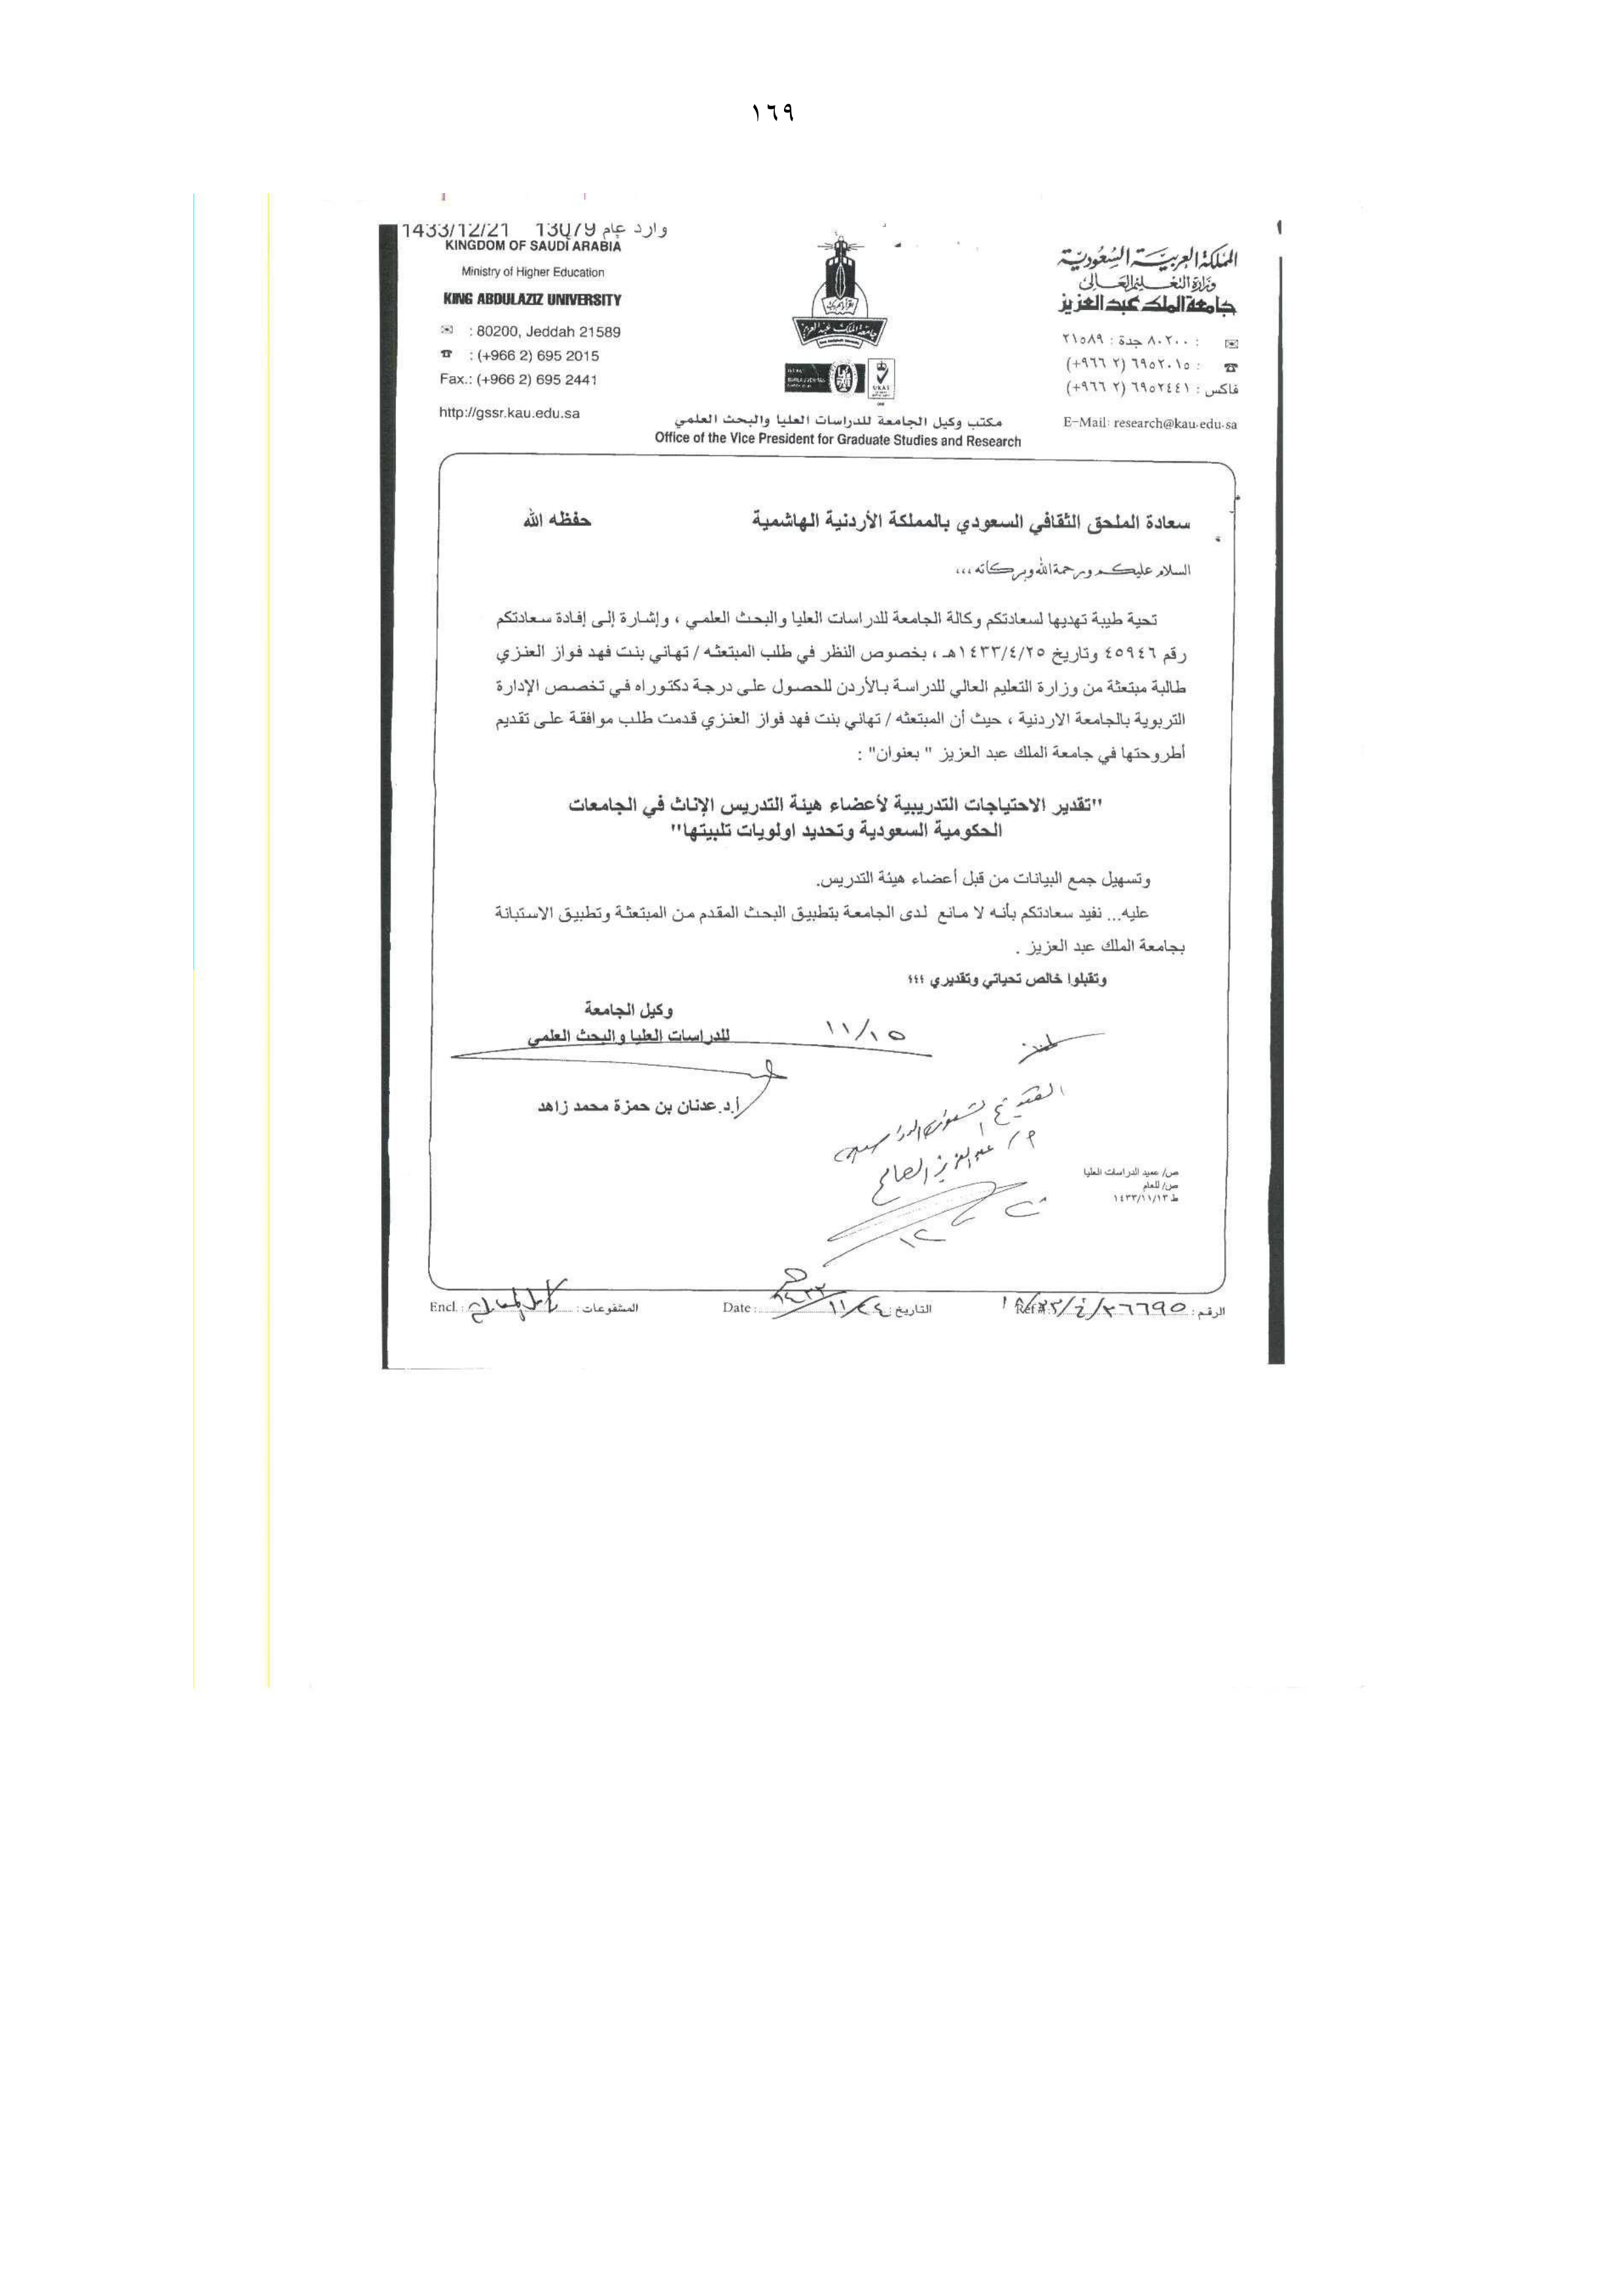 ١٦٩
وارد عام 13079 1433/12/21
KINGDOM OF SAUDI ARABIA
Ministry of Higher Education
KING ABDULAZIZ UNIVERSITY
: 80200, Jeddah 21589
: (+966 2) 695 2015
Fax.: (+966 2) 695 2441
http://gssr.kau.edu.sa
المملكة العربية السعودية
وزارة التعليم العالي
جامعة الملك عبد العزيز
: ٨٠٢٠٠ جدة : ٢١٥٨٩
: ٦٩٥٢٠١٥ (٢ ٩٦٦+)
فاكس : ٦٩٥٢٤٤١ (٢ ٩٦٦+)
E-Mail: research@kau.edu.sa
جامعة الملك عبد العزيز
UKAS
مكتب وكيل الجامعة للدراسات العليا والبحث العلمي
Office of the Vice President for Graduate Studies and Research
سعادة الملحق الثقافي السعودي بالمملكة الأردنية الهاشمية حفظه الله
السلام عليكم ورحمة الله وبركاته ،،،
تحية طيبة تهديها لسعادتكم وكالة الجامعة للدراسات العليا والبحث العلمي ، وإشارة إلى إفادة سعادتكم
رقم ٤٥٩٤٦ وتاريخ ١٤٣٣/٤/٢٥هـ ، بخصوص النظر في طلب المبتعثه / تهاني بنت فهد فواز العنزي
طالبة مبتعثة من وزارة التعليم العالي للدراسة بالأردن للحصول على درجة دكتوراه في تخصص الإدارة
التربوية بالجامعة الاردنية ، حيث أن المبتعثه / تهاني بنت فهد فواز العنزي قدمت طلب موافقة على تقديم
أطروحتها في جامعة الملك عبد العزيز " بعنوان" :
"تقدير الاحتياجات التدريبية لأعضاء هيئة التدريس الإناث في الجامعات
الحكومية السعودية وتحديد اولويات تلبيتها"
وتسهيل جمع البيانات من قبل أعضاء هيئة التدريس.
عليه... نفيد سعادتكم بأنه لا مانع لدى الجامعة بتطبيق البحث المقدم من المبتعثة وتطبيق الاستبانة
بجامعة الملك عبد العزيز .
وتقبلوا خالص تحياتي وتقديري ،،،
وكيل الجامعة
للدراسات العليا والبحث العلمي
١١/١٥
أ.د. عدنان بن حمزة محمد زاهد
م/ عبدالعزيز الصالح
ص/ عميد الدراسات العليا
ص/ للعام
ط ١٤٣٣/١١/١٣
الرقم : Ref.#
التاريخ : ١١/٢٤ ١٤٣٣ هـ Date :
المشفوعات : Encl. :